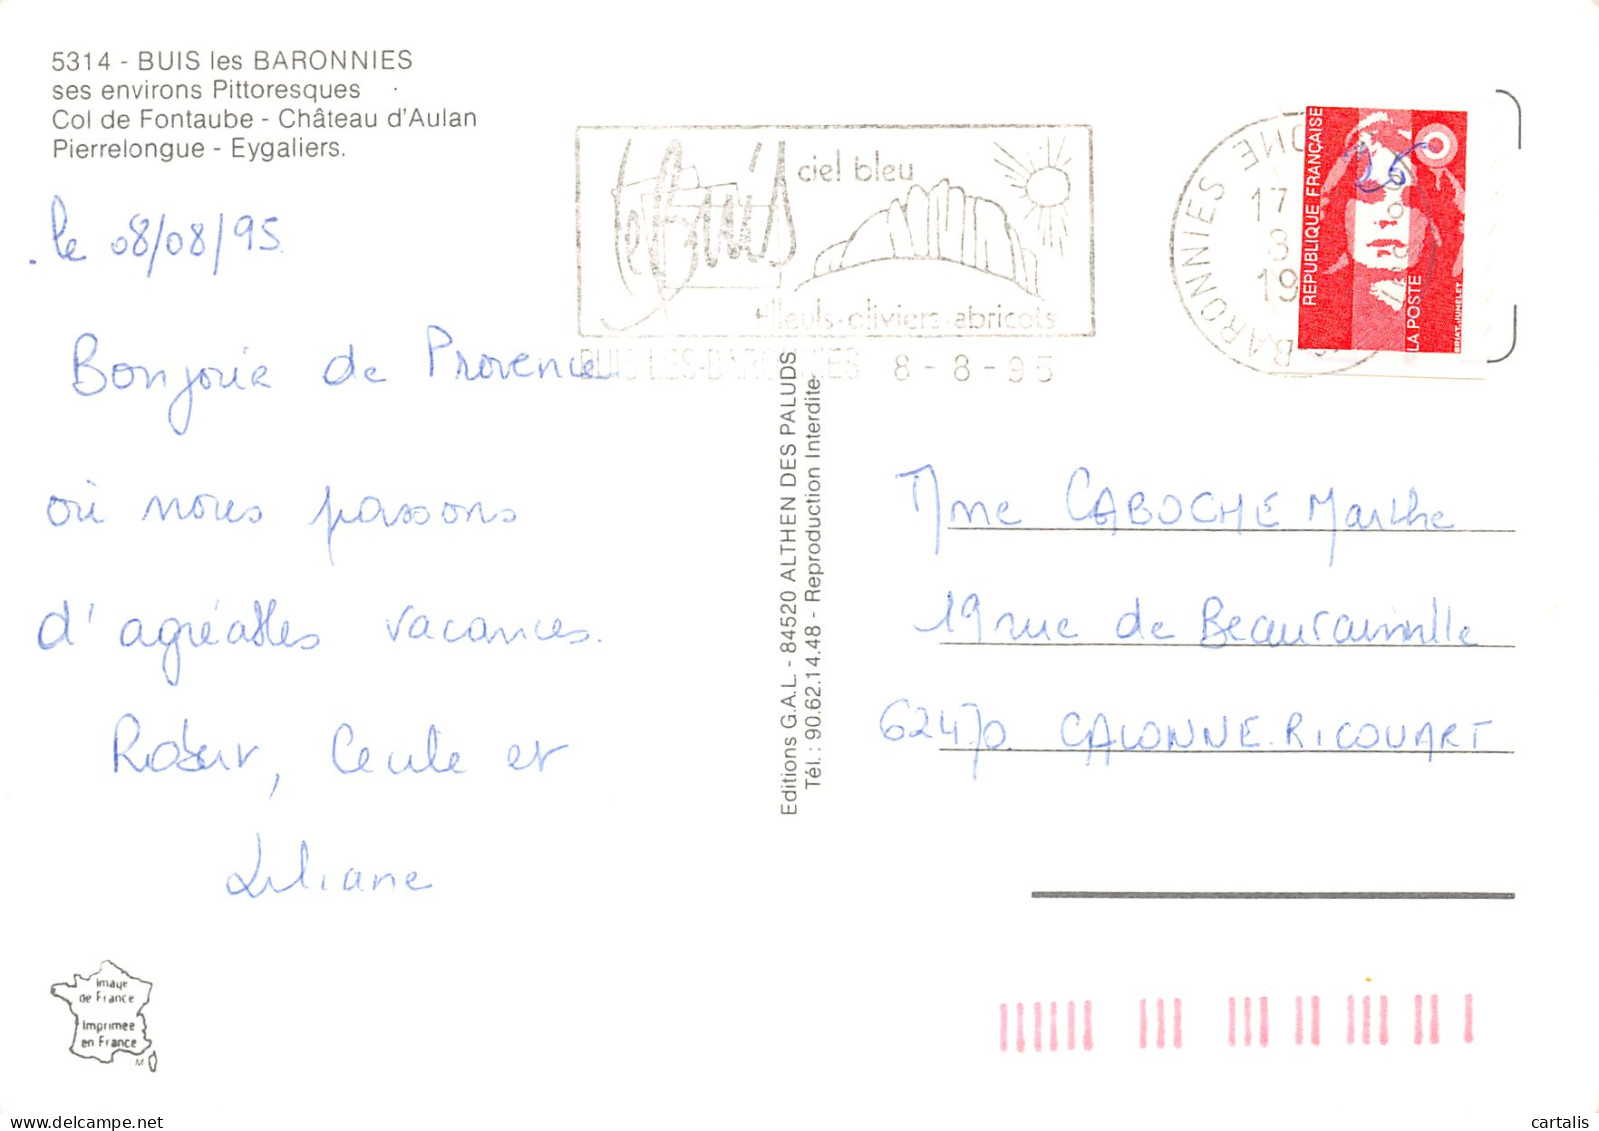 5314 - BUIS les BARONNIES
ses environs Pittoresques
Col de Fontaube - Château d'Aulan
Pierrelongue - Eygaliers.
le 08/08/95
Bonjour de Provence
où nous passons
d'agréables vacances.
Robert, Cecile et
Liliane
Image
de France
Imprimee
en France
Editions G.A.L. - 84520 ALTHEN DES PALUDS
Tél.: 90.62.14.48 - Reproduction Interdite
le Buis
ciel bleu
tilleuls-oliviers-abricots
BUIS-LES-BARONNIES 8-8-95
BARONNIES
17
8
19
REPUBLIQUE FRANÇAISE
LA POSTE
BRIAT-JUMELET
Mme CABOCHE Marthe
19 rue de Beaurainville
62470 CALONNE.RICOUART
cartalis
delcampe.net